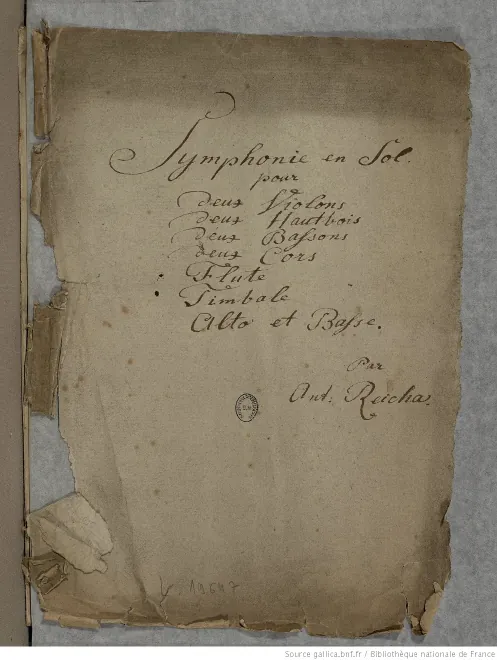 Symphonie en Sol.
pour
deux Violons
deux Hautbois
deux Bassons
deux Cors
Flute
Timbale
Alto et Basse.
Par
Ant: Reicha.
Source gallica.bnf.fr / Bibliothèque nationale de France